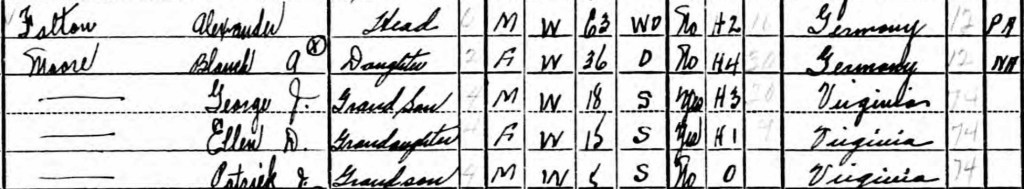 Folton Alexander Head 6 M W 63 WD No H2 Germany 12 PA
Moore Blanch A (X) Daughter 2 F W 36 D No H4 30 Germany 12 NA
— George J. Grand Son 4 M W 18 S Yes H3 20 Virginia 74
— Ellen D. Grandaughter 4 F W 15 S Yes H1 Virginia 74
— Patrick J. Grandson 4 M W S No 0 Virginia 74